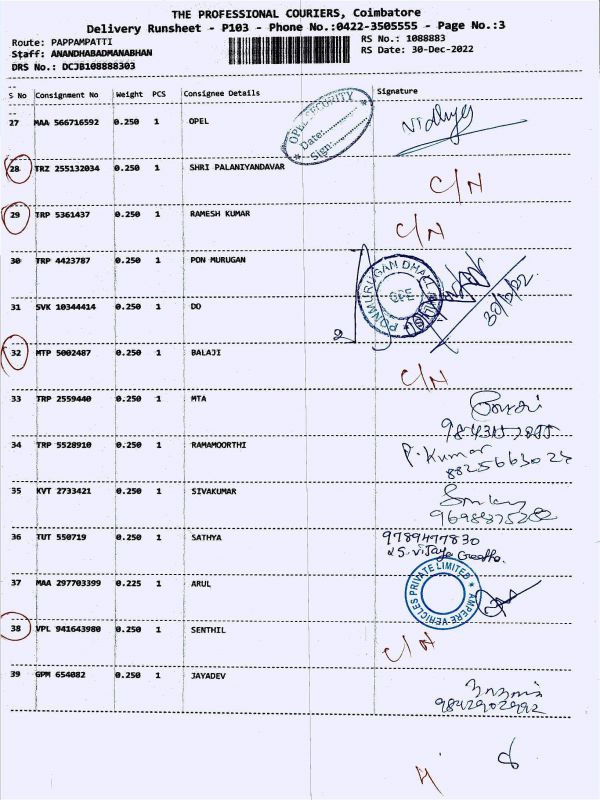 THE PROFESSIONAL COURIERS, Coimbatore
Delivery Runsheet - P103 - Phone No.:0422-3505555 - Page No.:3
Route: PAPPAMPATTI RS No.: 1088883
Staff: ANANDHABADMANABHAN RS Date: 30-Dec-2022
DRS No.: DCJB108888303
S No Consignment No Weight PCS Consignee Details Signature
27 MAA 566716592 0.250 1 OPEL OPEL SECURITY Date: Sign: Vidhya
28 TRZ 255132034 0.250 1 SHRI PALANIYANDAVAR C/N
29 TRP 5361437 0.250 1 RAMESH KUMAR C/N
30 TRP 4423787 0.250 1 PON MURUGAN PONMURUGAN CBE
31 SVK 10344414 0.250 1 DO 30/12/22
32 MTP 5002487 0.250 1 BALAJI C/N
33 TRP 2559440 0.250 1 MTA
34 TRP 5528910 0.250 1 RAMAMOORTHI P. Kumar
35 KVT 2733421 0.250 1 SIVAKUMAR
36 TUT 550719 0.250 1 SATHYA 9789477830
S. Vijaya Geetha.
37 MAA 297703399 0.225 1 ARUL AMPERE VEHICLES PRIVATE LIMITED
38 VPL 941643980 0.250 1 SENTHIL C/N
39 GPM 654082 0.250 1 JAYADEV
9842902992